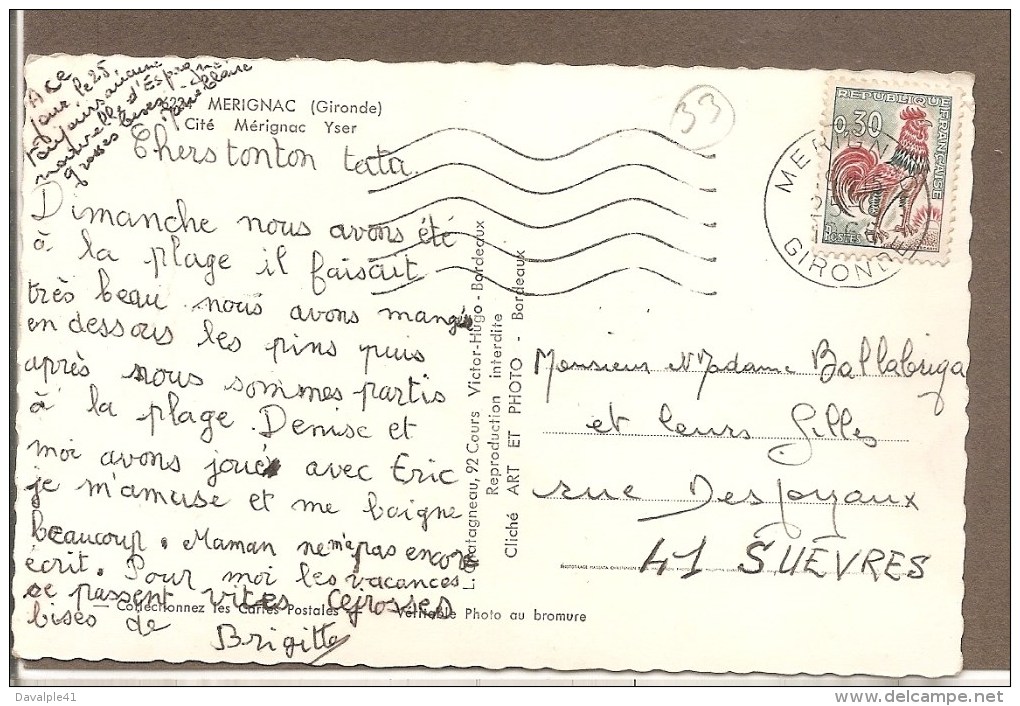 A ce
jour le 25
toujours aucune
nouvelle d'Espagne
grosses bises
33
6221 MERIGNAC (Gironde)
Cité Mérignac Yser
Chers tonton tata.
Dimanche nous avons été
à la plage il faisait
très beau nous avons mangés
en dessous les pins puis
après nous sommes partis
à la plage. Denise et
moi avons joué avec Eric
je m'amuse et me baigne
beaucoup. Maman ne m'a pas encore
écrit. Pour moi les vacances
se passent vites grosses
bises de
Brigitte
— Collectionnez les Cartes Postales
Véritable Photo au bromure
92 Cours Victor-Hugo - Bordeaux
Reproduction interdite
Cliché ART ET PHOTO - Bordeaux
REPUBLIQUE FRANÇAISE
0,30
POSTES
MERIGNAC
GIRONDE
Monsieur Madame Ballabriga
et leurs Gilles
rue Desjoyaux
41 SUEVRES
Davalple41
www.delcampe.net